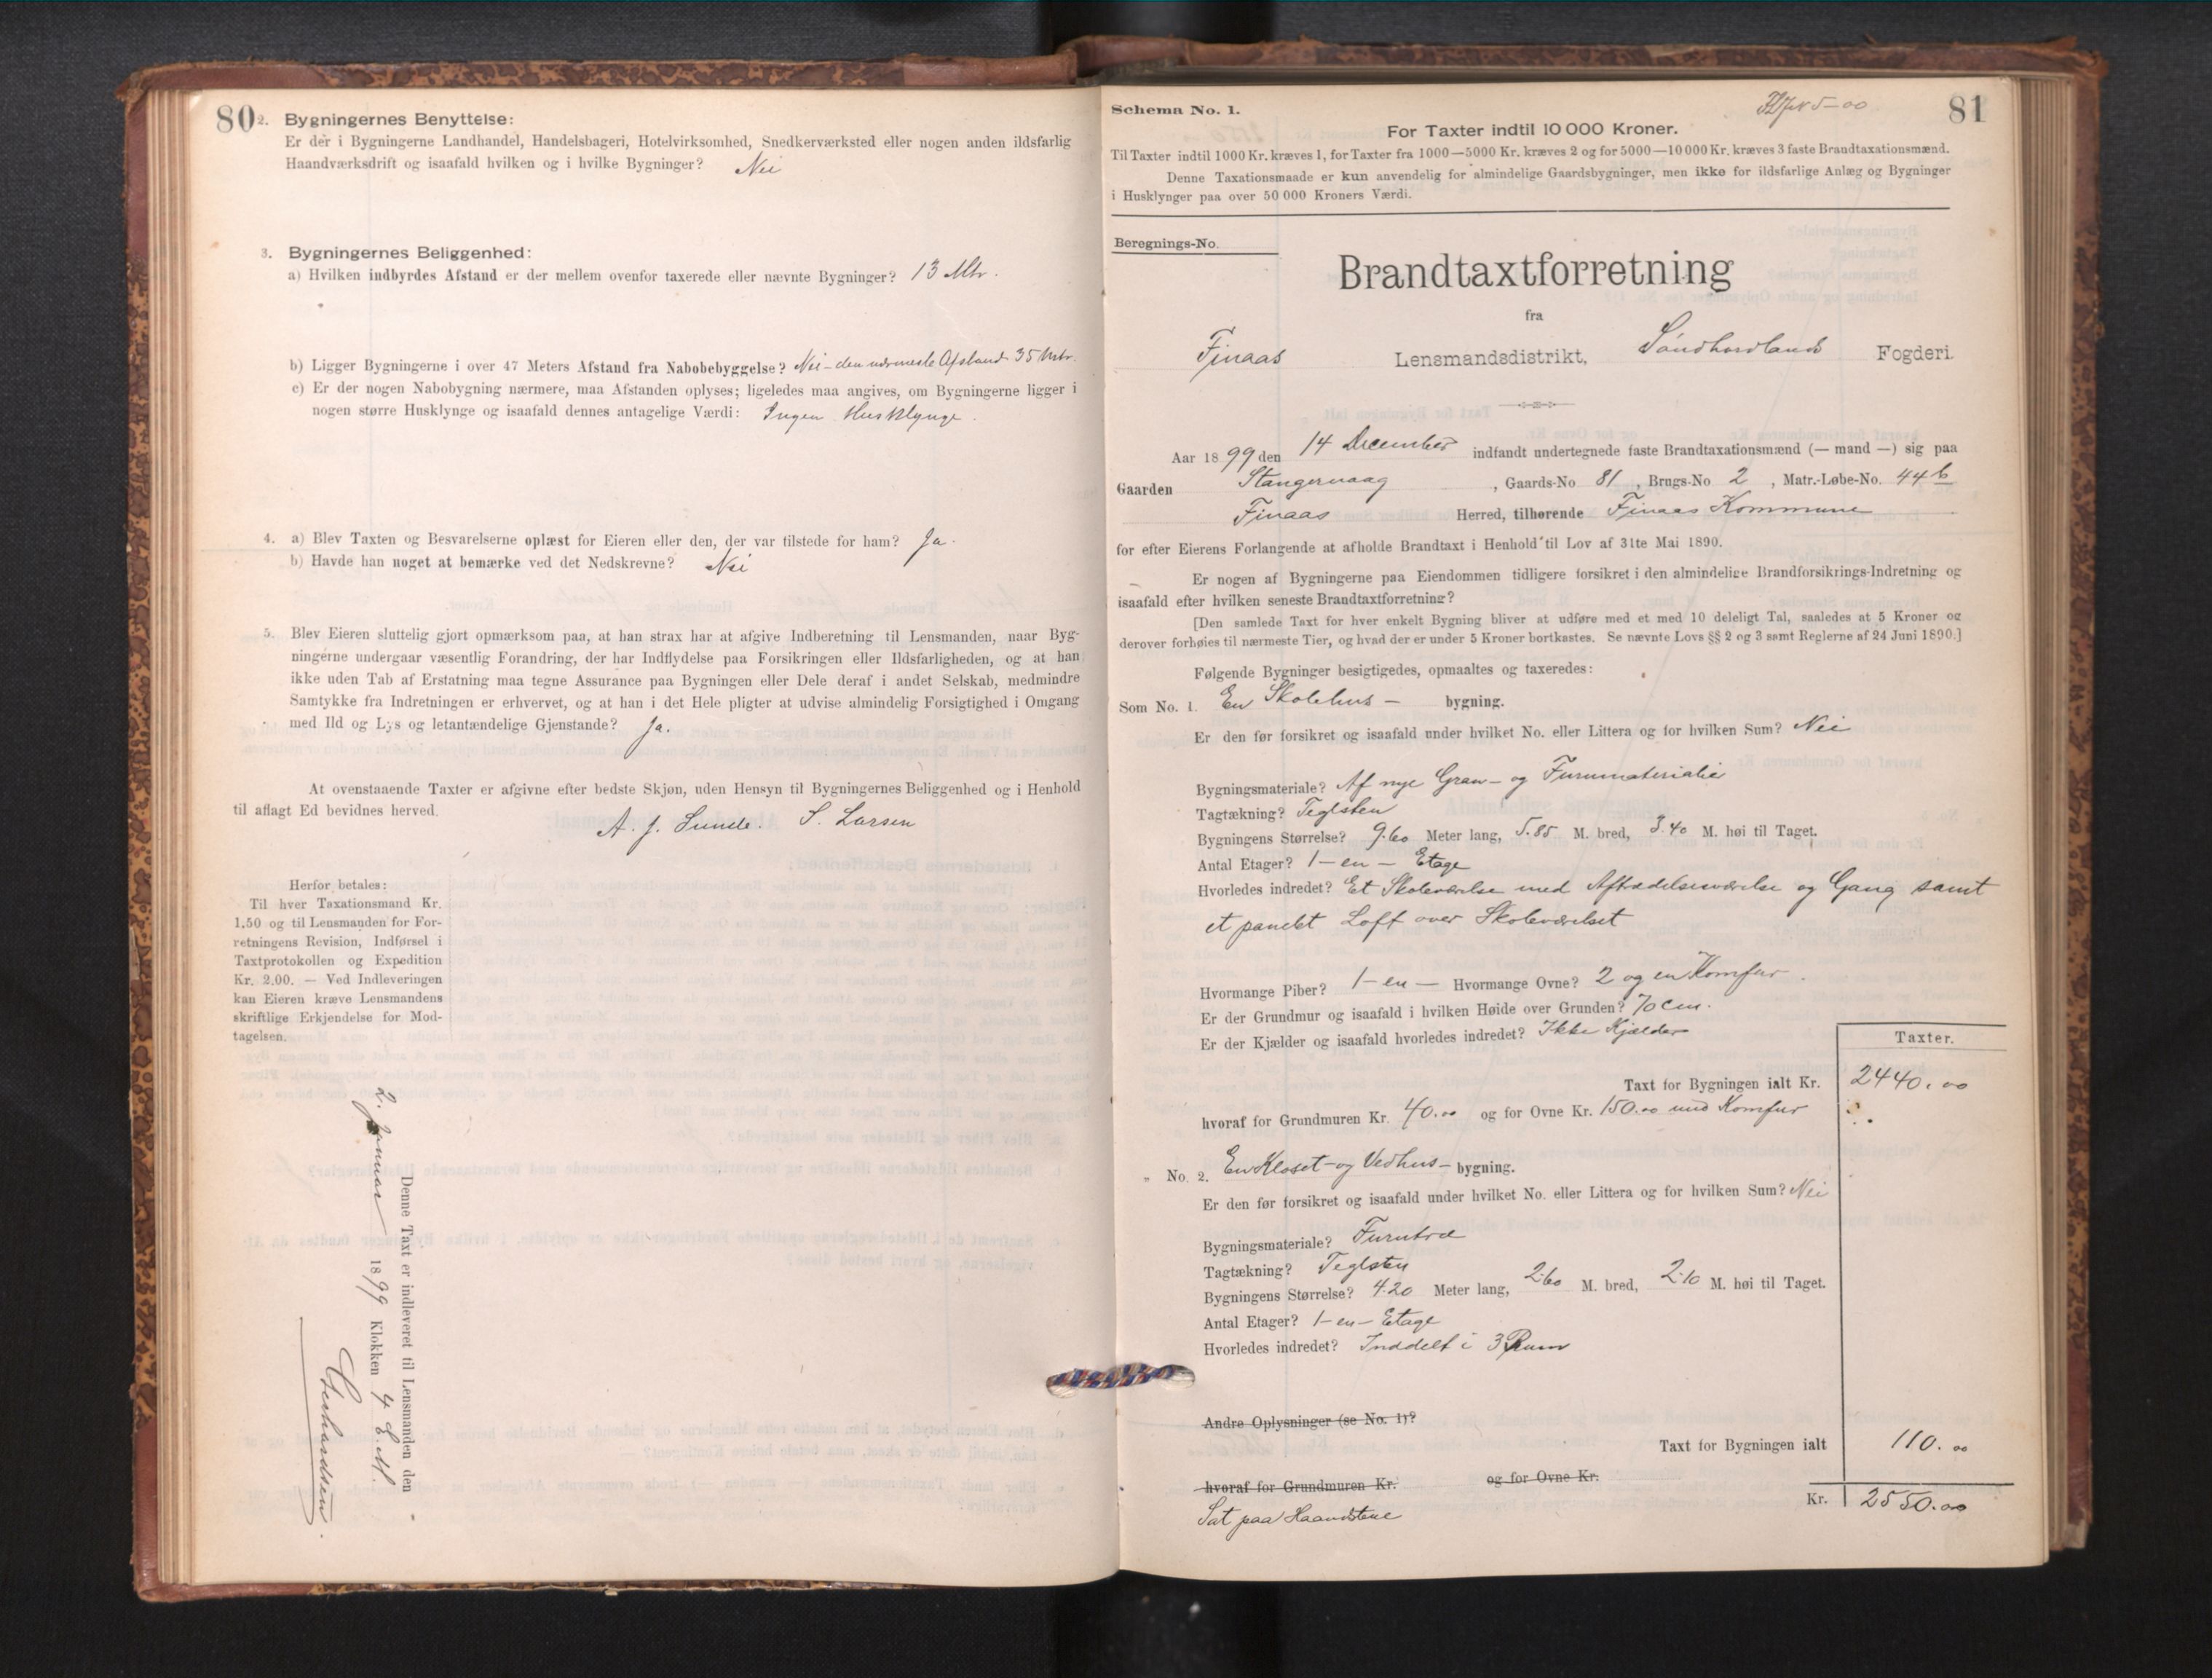 80
2. Bygningernes Benyttelse:
Er der i Bygningerne Landhandel, Handelsbageri, Hotelvirksomhed, Snedkerværksted eller nogen anden ildsfarlig
Haandværksdrift og isaafald hvilken og i hvilke Bygninger? Nei
3. Bygningernes Beliggenhed:
a) Hvilken indbyrdes Afstand er der mellem ovenfor taxerede eller nævnte Bygninger? 13 Mtr.
b) Ligger Bygningerne i over 47 Meters Afstand fra Nabobebyggelse? Nei - den nærmeste Afstand 35 Mtr.
c) Er der nogen Nabobygning nærmere, maa Afstanden oplyses; ligeledes maa angives, om Bygningerne ligger i
nogen større Husklynge og isaafald dennes antagelige Værdi: Ingen Husklynge.
4. a) Blev Taxten og Besvarelserne oplæst for Eieren eller den, der var tilstede for ham? Ja.
b) Havde han noget at bemærke ved det Nedskrevne? Nei
5. Blev Eieren sluttelig gjort opmærksom paa, at han strax har at afgive Indberetning til Lensmanden, naar Byg-
ningerne undergaar væsentlig Forandring, der har Indflydelse paa Forsikringen eller Ildsfarligheden, og at han
ikke uden Tab af Erstatning maa tegne Assurance paa Bygningen eller Dele deraf i andet Selskab, medmindre
Samtykke fra Indretningen er erhvervet, og at han i det Hele pligter at udvise almindelig Forsigtighed i Omgang
med Ild og Lys og letantændelige Gjenstande? Ja.
At ovenstaaende Taxter er afgivne efter bedste Skjøn, uden Hensyn til Bygningernes Beliggenhed og i Henhold
til aflagt Ed bevidnes herved.
A. J. Sunde. S. Larsen
Herfor betales:
Til hver Taxationsmand Kr.
1,50 og til Lensmanden for For-
retningens Revision, Indførsel i
Taxtprotokollen og Expedition
Kr. 2.00. — Ved Indleveringen
kan Eieren kræve Lensmandens
skriftlige Erkjendelse for Mod-
tagelsen.
Denne Taxt er indleveret til Lensmanden den
2. Januar 1899 Klokken 4 E.M.
81
Schema No. 1.
5-00
For Taxter indtil 10 000 Kroner.
Til Taxter indtil 1000 Kr. kræves 1, for Taxter fra 1000—5000 Kr. kræves 2 og for 5000—10 000 Kr. kræves 3 faste Brandtaxationsmænd.
Denne Taxationsmaade er kun anvendelig for almindelige Gaardsbygninger, men ikke for ildsfarlige Anlæg og Bygninger
i Husklynger paa over 50 000 Kroners Værdi.
Beregnings-No.
Brandtaxtforretning
fra
Finaas Lensmandsdistrikt, Søndhordlands Fogderi.
Aar 1899 den 14 December indfandt undertegnede faste Brandtaxationsmænd (— mand —) sig paa
Gaarden Stangervaag, Gaards-No 81, Brugs-No 2, Matr.-Løbe-No. 44 b
Finaas Herred, tilhørende Finaas Kommune
for efter Eierens Forlangende at afholde Brandtaxt i Henhold til Lov af 31te Mai 1890.
Er nogen af Bygningerne paa Eiendommen tidligere forsikret i den almindelige Brandforsikrings-Indretning og
isaafald efter hvilken seneste Brandtaxtforretning?
[Den samlede Taxt for hver enkelt Bygning bliver at udføre med et med 10 deleligt Tal, saaledes at 5 Kroner og
derover forhøies til nærmeste Tier, og hvad der er under 5 Kroner bortkastes. Se nævnte Lovs §§ 2 og 3 samt Reglerne af 24 Juni 1890.]
Følgende Bygninger besigtigedes, opmaaltes og taxeredes:
Som No. 1. En Skolehus - bygning.
Er den før forsikret og isaafald under hvilket No. eller Littera og for hvilken Sum? Nei
Bygningsmateriale? Af nye Gran- og Furumaterialie
Tagtækning? Teglsten
Bygningens Størrelse? 9.60 Meter lang, 5.85 M. bred, 3.40 M. høi til Taget.
Antal Etager? 1 - en - Etage
Hvorledes indredet? Et Skoleværelse med Aftrædelsesværelse og Gang samt
et panelet Loft over Skoleværelset
Hvormange Piber? 1 - en - Hvormange Ovne? 2 og en Komfur.
Er der Grundmur og isaafald i hvilken Høide over Grunden? 70 cm.
Er der Kjælder og isaafald hvorledes indredet? Ikke Kjælder
Taxter.
Taxt for Bygningen ialt Kr. 2440.00
hvoraf for Grundmuren Kr. 40.00 og for Ovne Kr. 150.00 med Komfur
„ No. 2. En Kloset- og Vedhus - bygning.
Er den før forsikret og isaafald under hvilket No. eller Littera og for hvilken Sum? Nei
Bygningsmateriale? Furutræ
Tagtækning? Teglsten
Bygningens Størrelse? 4.20 Meter lang, 2.60 M. bred, 2.10 M. høi til Taget.
Antal Etager? 1 - en - Etage
Hvorledes indredet? Inddelt i 3 Rum
Andre Oplysninger (se No. 1)?
Taxt for Bygningen ialt 110.00
hvoraf for Grundmuren Kr. og for Ovne Kr.
Kr. 2550.00
Sat paa Haandstene